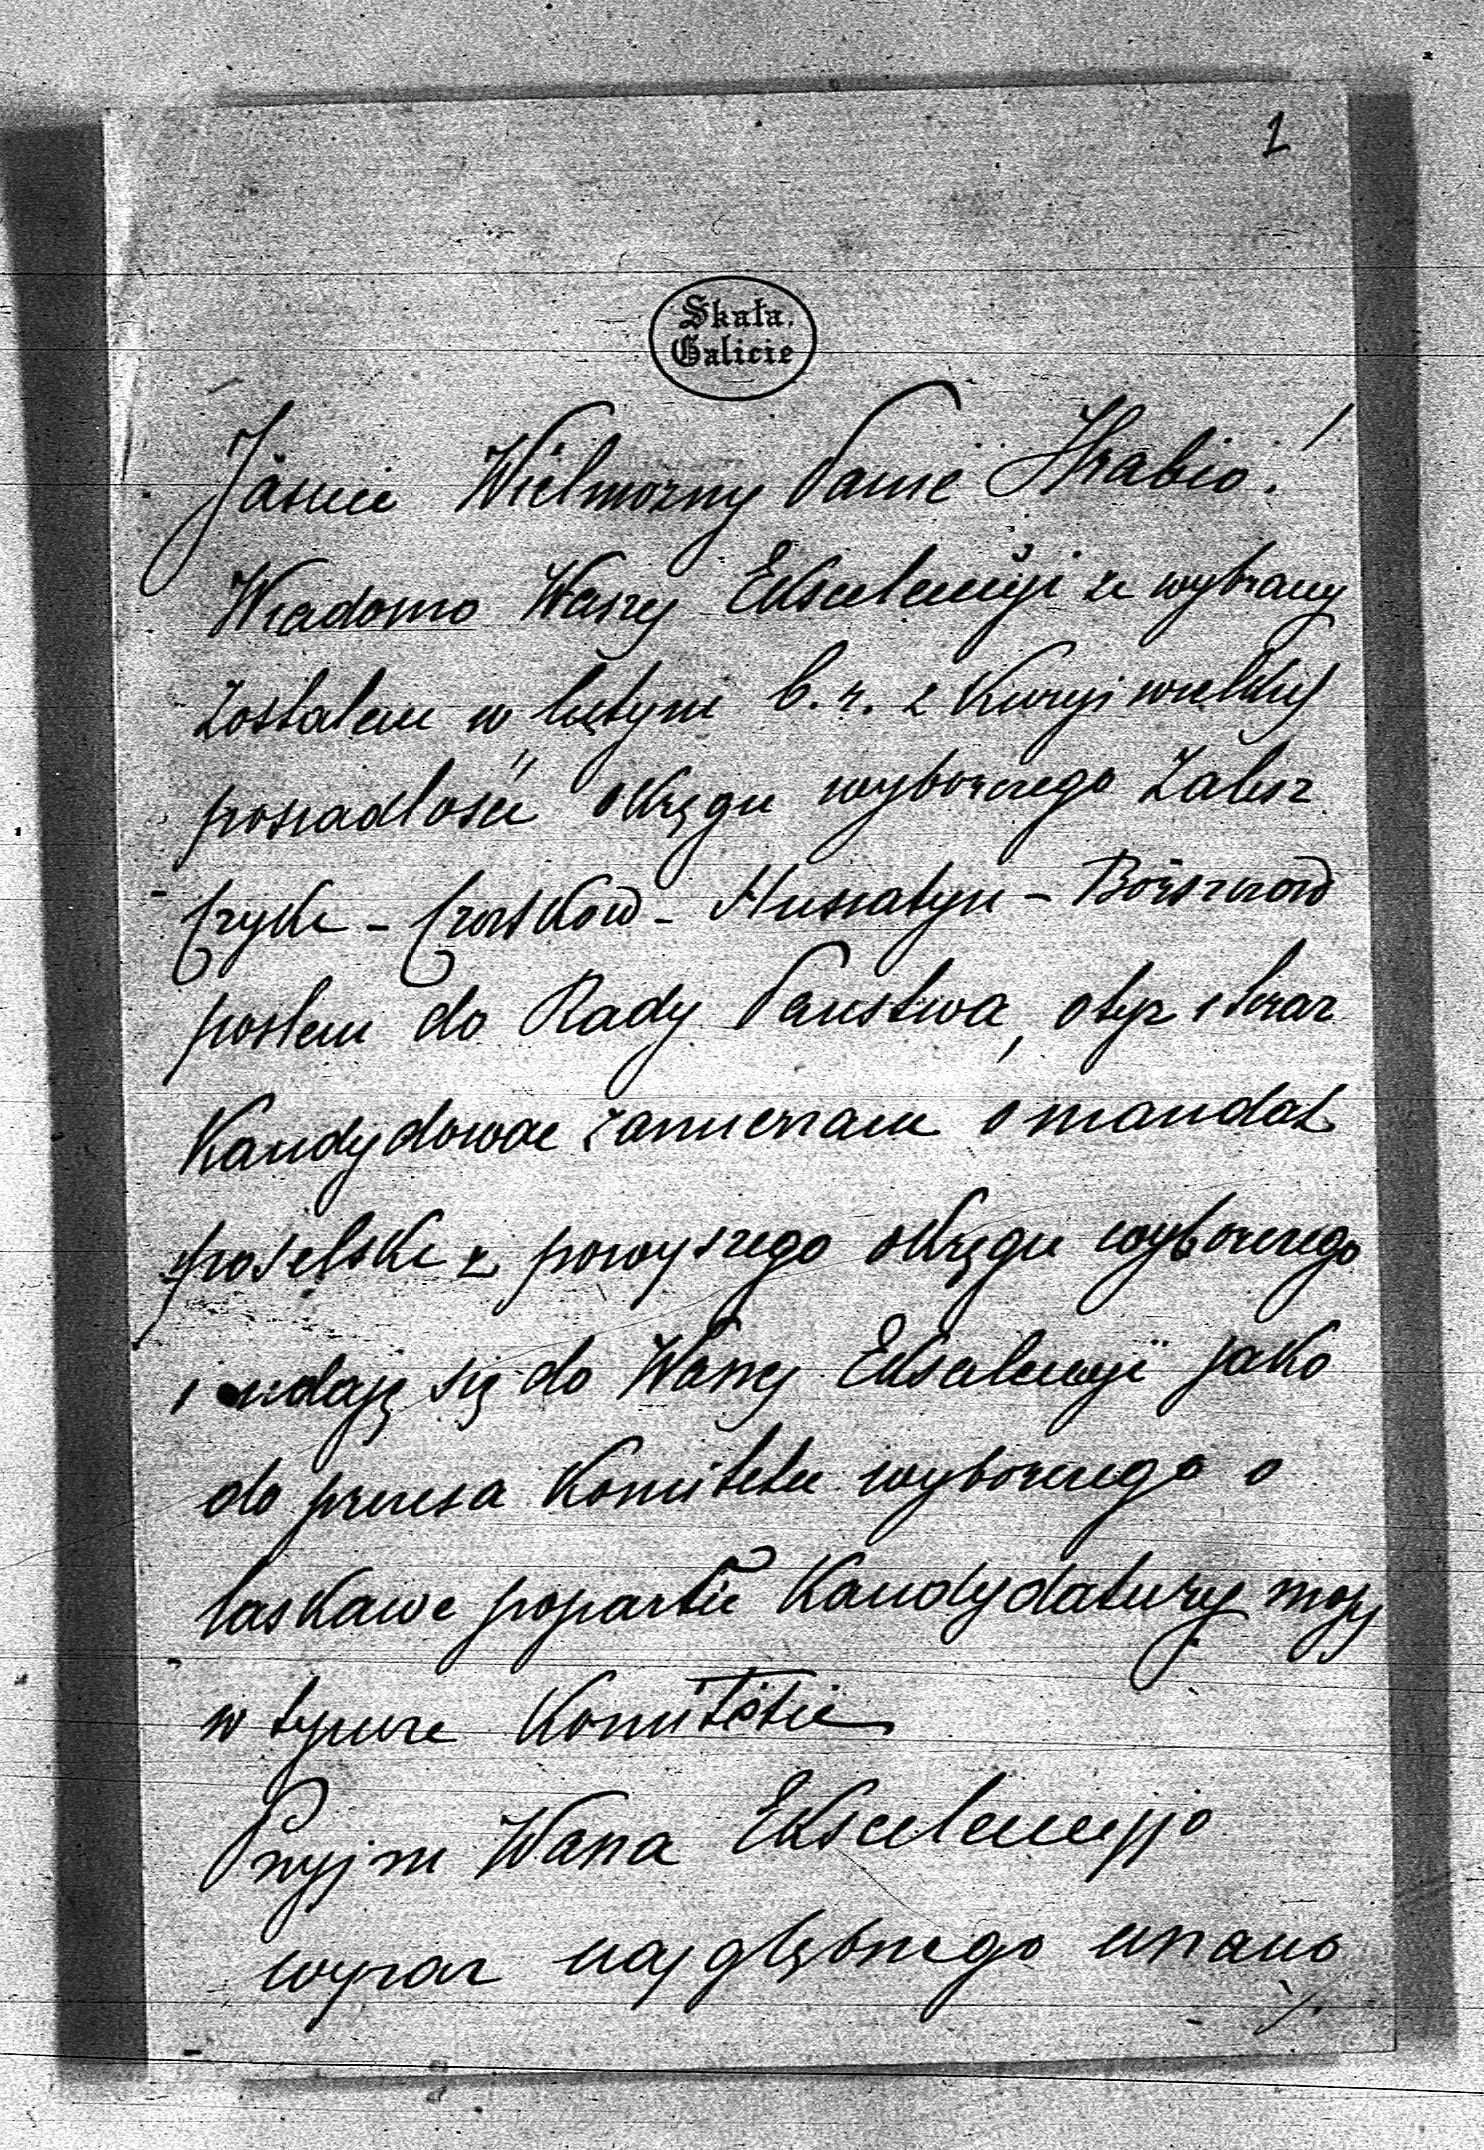 1
Skała.
Galicie
Jaśnie Wielmożny Panie Hrabio!
Wiadomo Waszej Ekscelencyji że wybrany
zostałem w lutym b. r. z Kuryi wielkiej
posiadłości okręgu wyborczego Zalesz
czyki - Czortków - Husiatyn - Borszczów
posłem do Rady Państwa, otoż i teraz
Kandydować zamierzam o mandat
poselski z powyższego okręgu wyborczego
i udaję się do Waszej Ekscelencyi jako
do prezesa Komitetu wyborczego o
łaskawe poparcie Kandydatury mojej
w tymże Komitecie
Przyjm Wasza Ekscelencyjo
wyraz najgłębszego uszano
./.